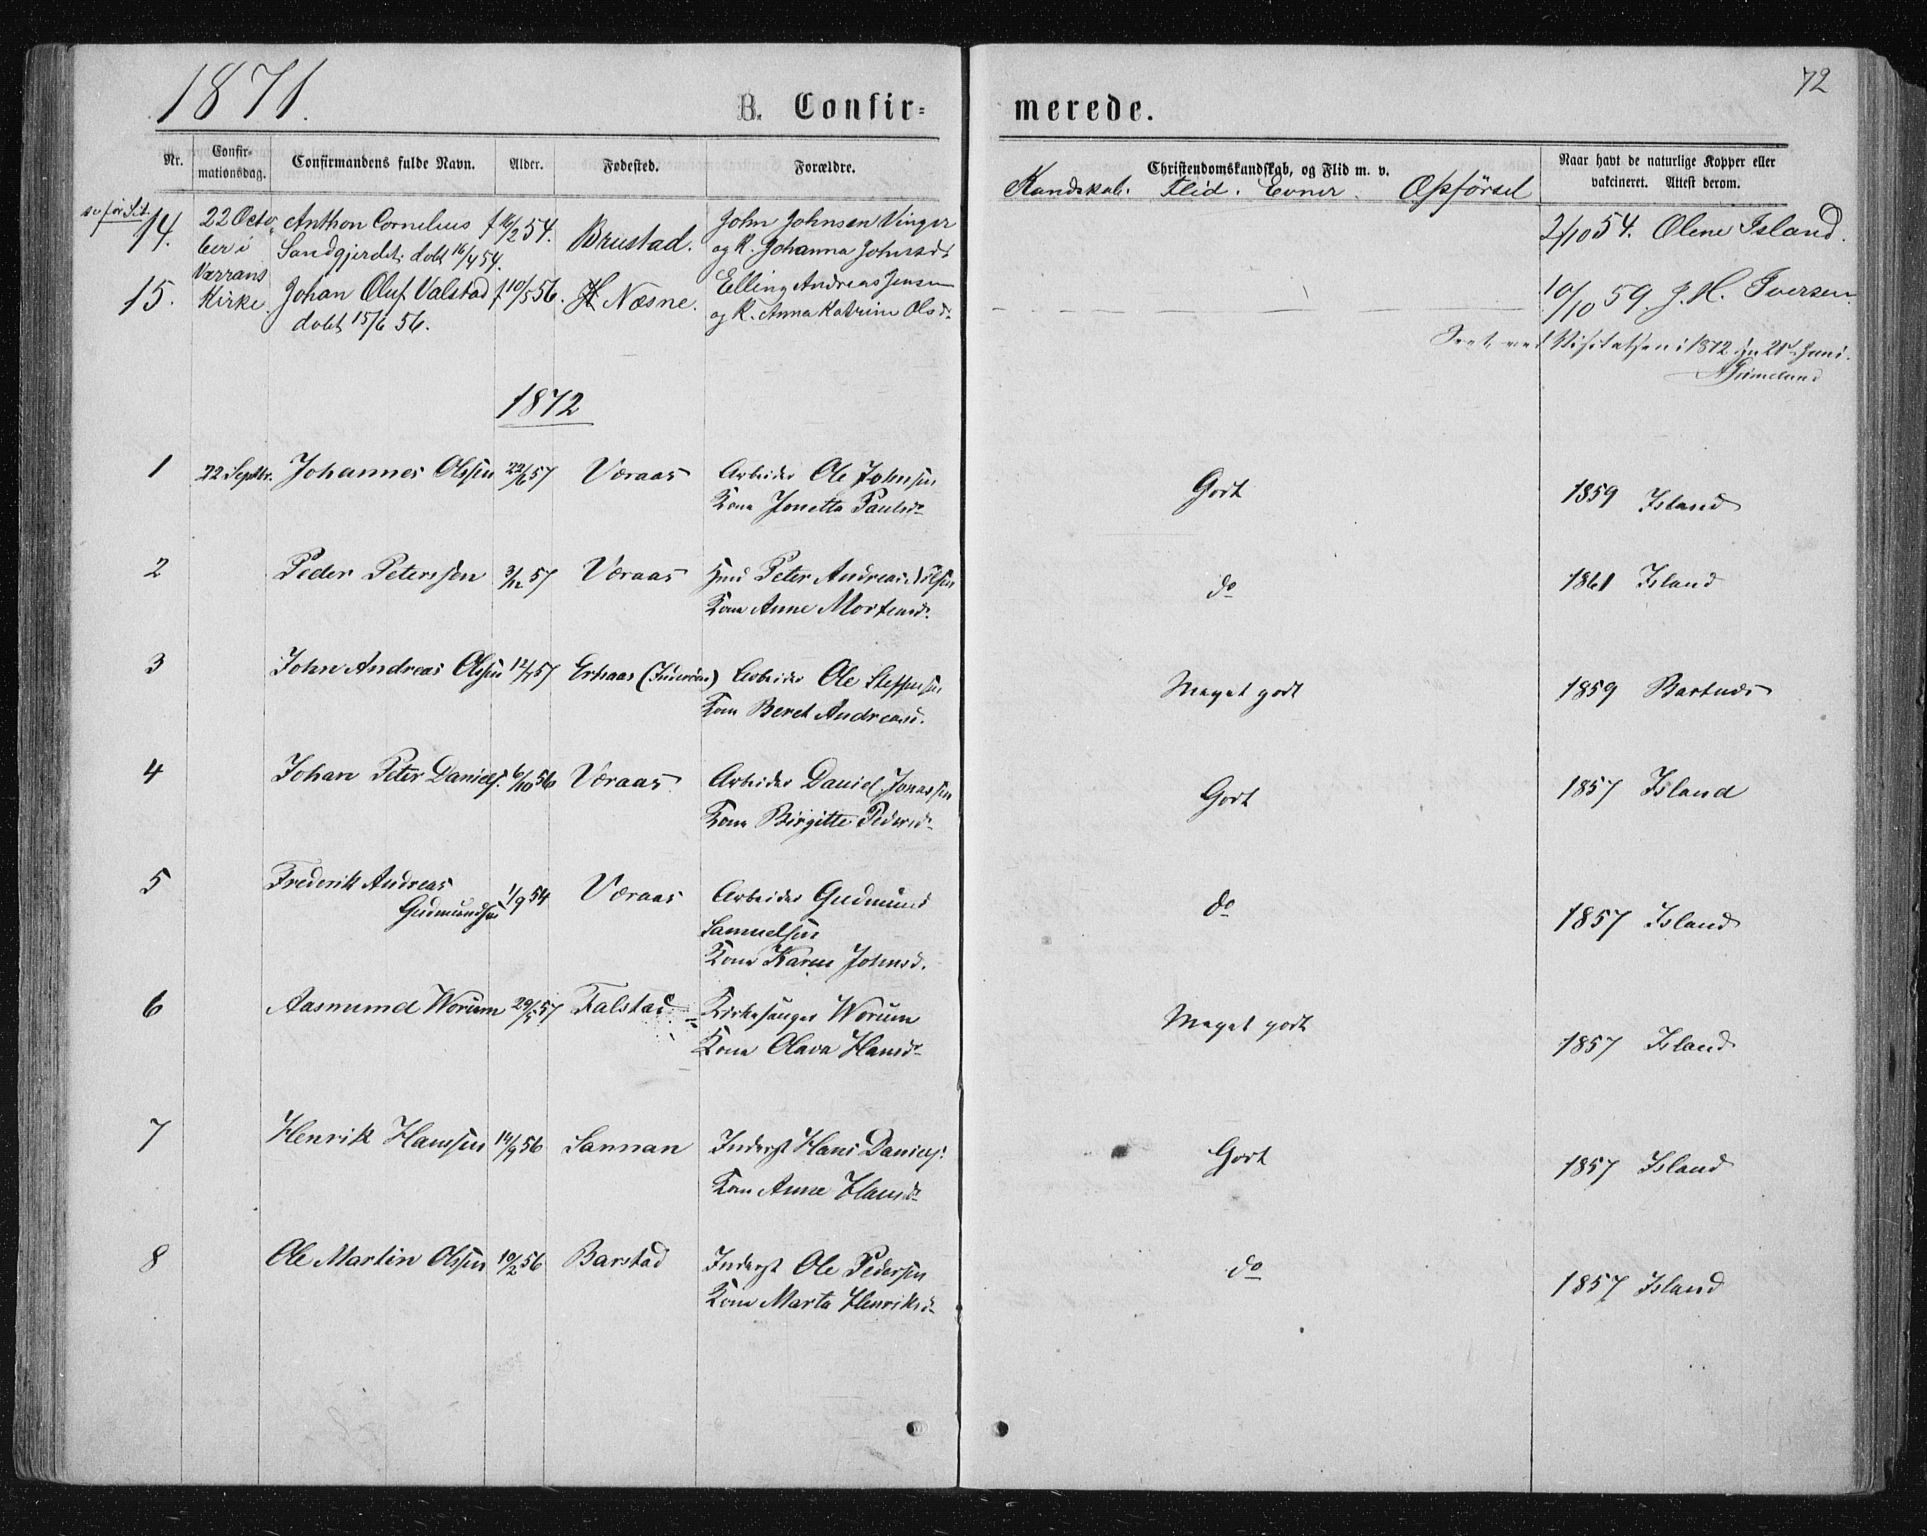 1871.
72
B. Confir-
merede.
Nr.
Confir-
mationsdag.
Confirmandens fulde Navn.
Alder.
Fødested.
Forældre.
Christendomskundskab, og Flid m. v.
Naar havt de naturlige Kopper eller
vakcineret. Attest derom.
Kundskab. Flid. Evner. Opførsel
14. 22 Octo- Anthon Cornelius f 16/2 54. Brustad. John Johnsen Vinger 2/10 54. Olene Island.
ber i Sandgjerdet døbt 16/4 54. og K. Johanna Johnsdt
Værrans
15. Kirke. Johan Oluf Valstad f 10/5 56. Næsne. Elling Andreas Jensen 10/10 59. J. H. Iversen
døbt 15/6 56. og K. Anna Katrine Olsd.
Visitatsen i 1872 21 Juni.
Grimelund
1872
1 22 Septbr. Johannes Olssen 22/6 57 Væraas Arbeider Ole Johnsen Godt 1859 Island
Kone Jonetta Paulsd
2 Peder Peterssen 3/12 57 Væraas Peter Andreas do 1861 Island
Kone Anne Mortensd.
3 John Andreas Olssen 12/7 57 (Inderøen) Arbeider Ole Steffensen Meget godt 1859 Bartnes
Kone Beret Andreasd.
4 Johan Peter Daniels. 6/10 56 Væraas Arbeider Daniel Jonassen Godt 1857 Island
Kone Birgitte Pedersd
5 Frederik Andreas 1/9 54 Væraas Arbeider Gudmund do 1857 Island
Gudmundsen Samuelsen
Kone Karen Johnsd.
6 Aasmund Worum 29/5 57 Falstad Kirkesanger Worum Meget godt 1857 Island
Kone Olava Hansd
7 Henrik Hanssen 14/9 56 Sannan Inderst Hans Daniels. Godt 1857 Island
Kone Anne Hansd
8 Ole Martin Olssen 10/2 56 Barstad Inderst Ole Pedersen do 1857 Island
Kone Marta Henriksd